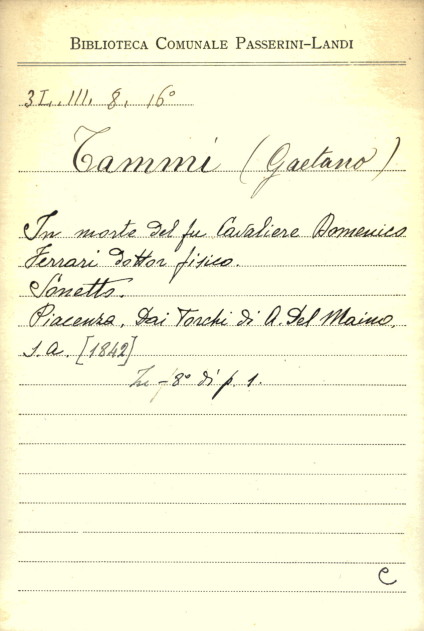 BIBLIOTECA COMUNALE PASSERINI-LANDI
3L. III. 8. 16°
Tammi (Gaetano)
In morte del fu Cavaliere Domenico
Ferrari dottor fisico.
Sonetto.
Piacenza, Dai Torchi di A. Del Maino,
s. a. [1842]
In-8° di p. 1.
C